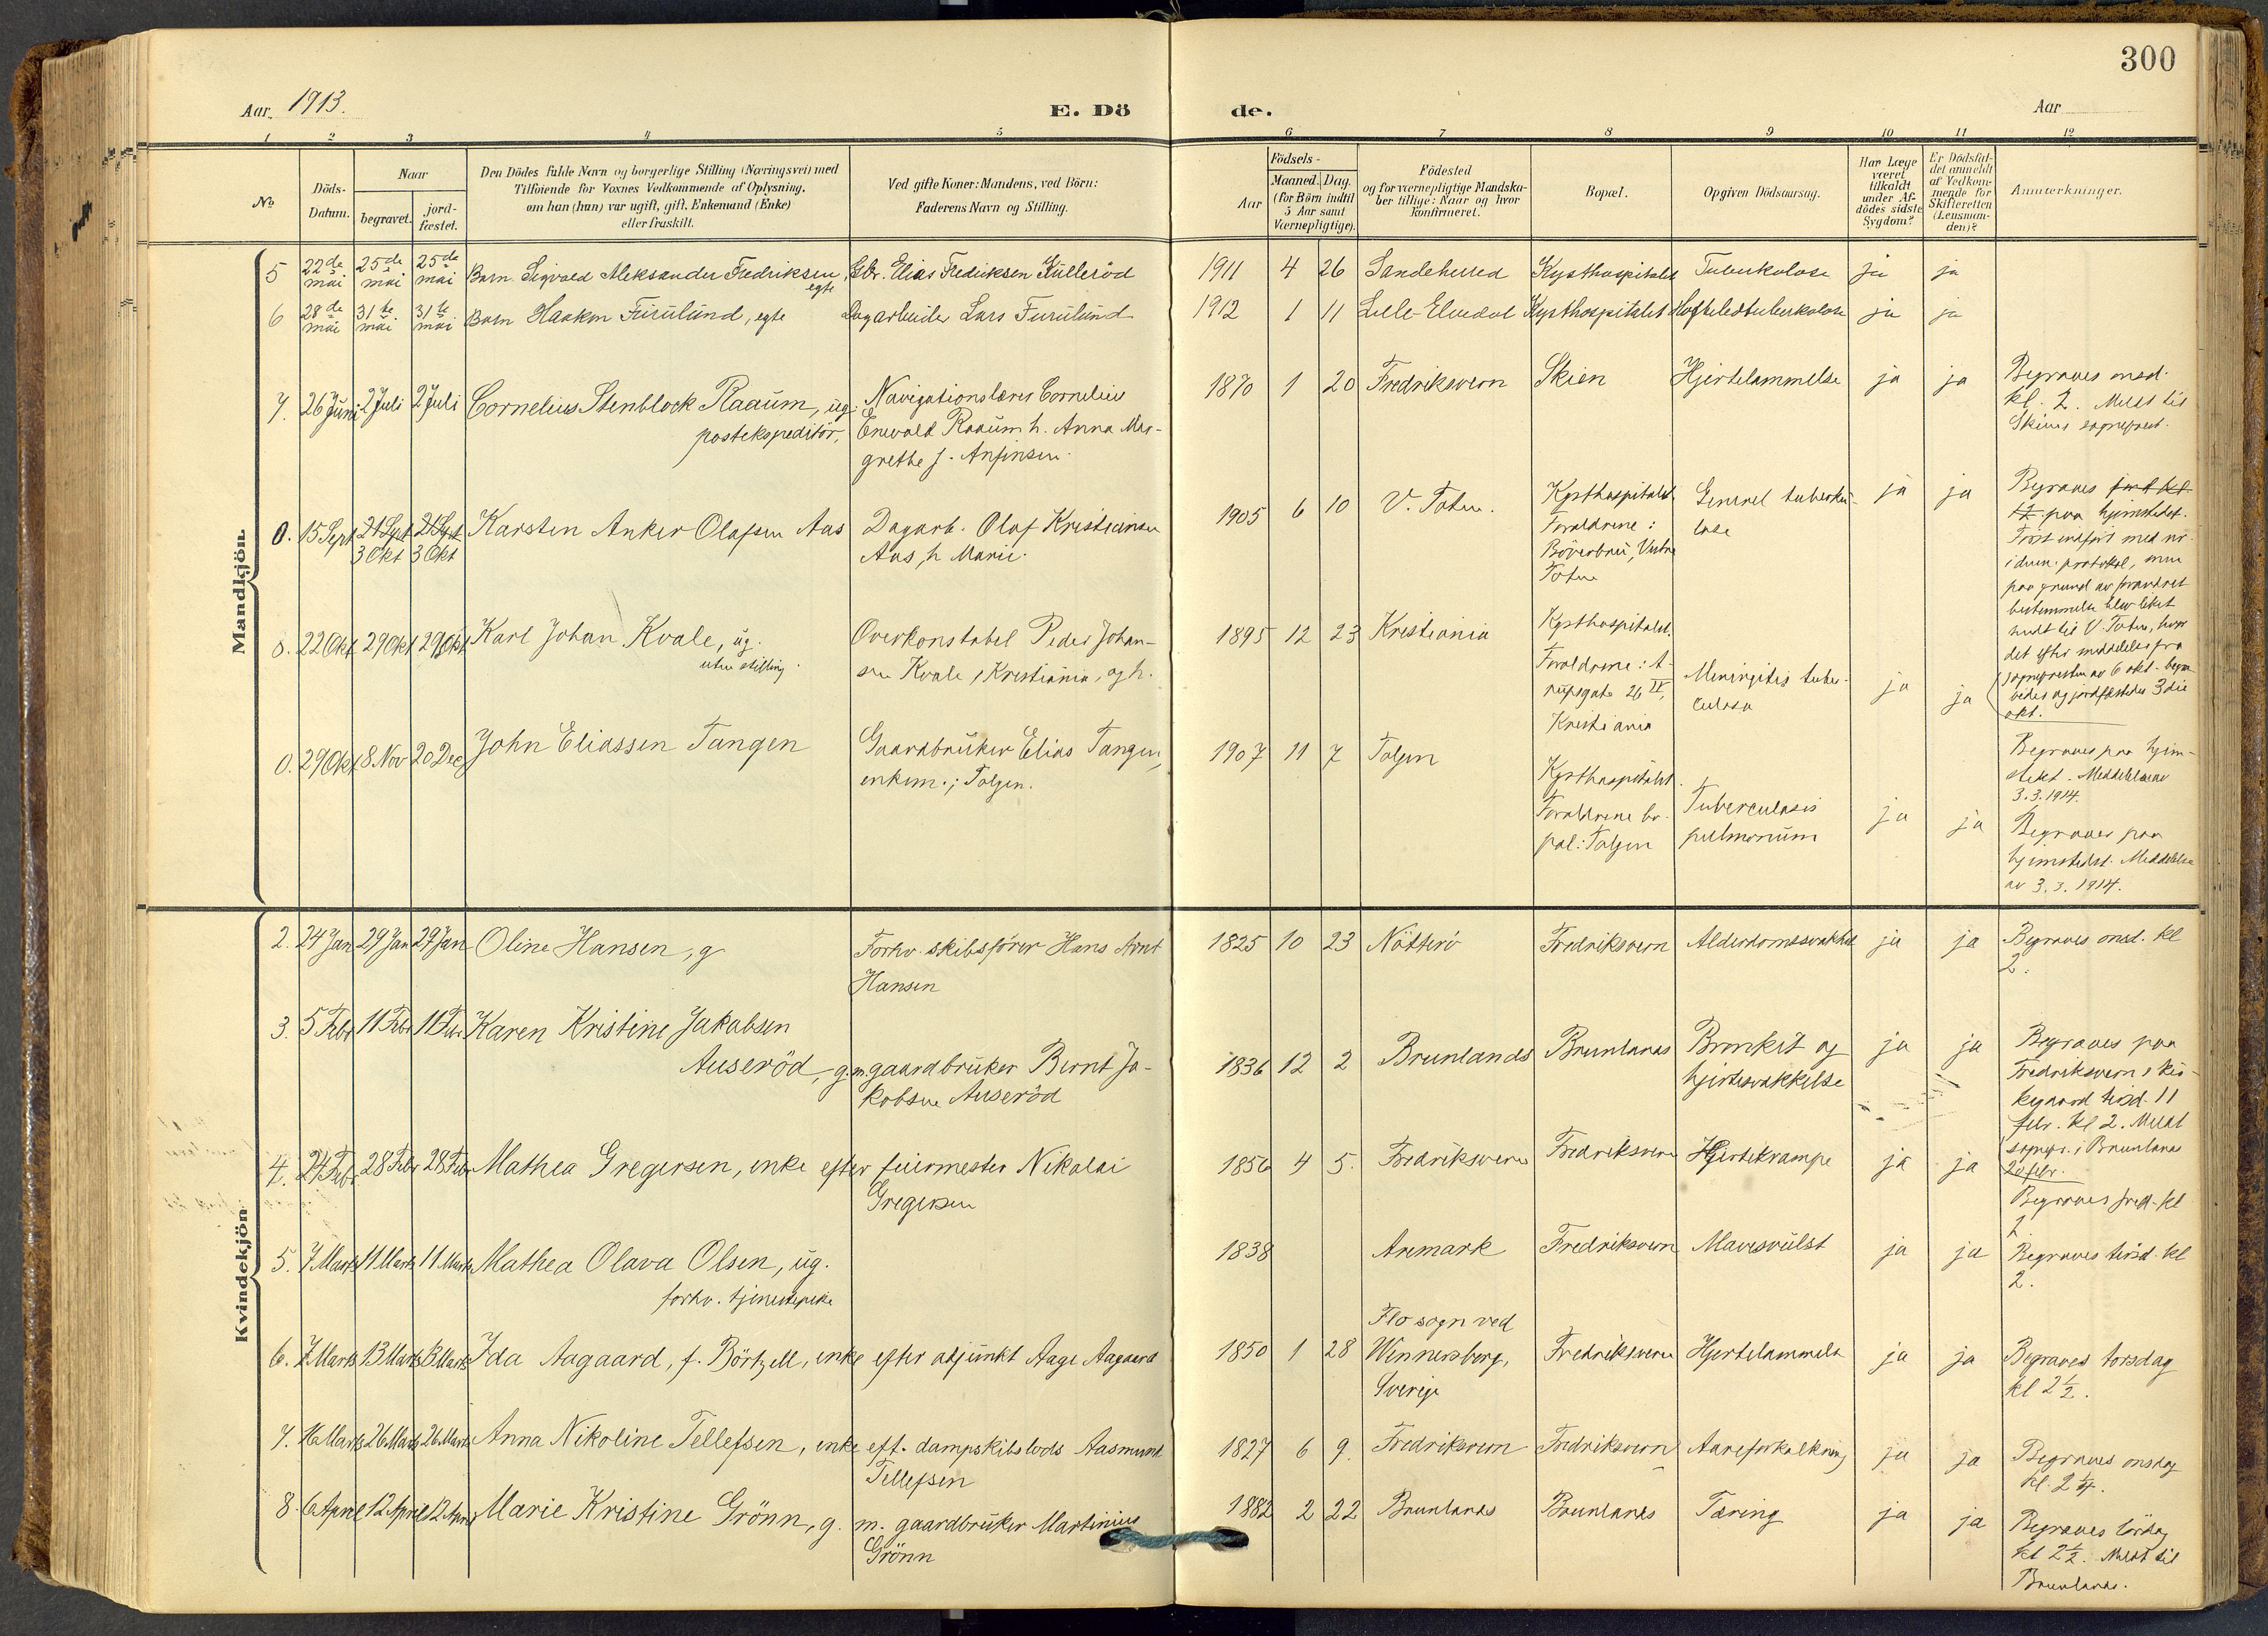 300
Aar 1913.
E. Dö de.
Aar
1 2 3 4 5 6 7 8 9 10 11 12
No
Döds-Datum.
Naar
begravet.
jord-fæstet.
Den Dödes fulde Navn og borgerlige Stilling (Næringsvei) med
Tilföiende for Voxnes Vedkommende af Oplysning,
om han (hun) var ugift, gift, Enkemand (Enke)
eller fraskilt.
Ved gifte Koner: Mandens, ved Börn:
Faderens Navn og Stilling.
Födsels-
Aar
Maaned. Dag.
(for Börn indtil
5 Aar samt
Værnepligtige).
Födested
og for værnepligtige Mandska-
ber tillige: Naar og hvor
konfirmeret.
Bopæl.
Opgiven Dödsaarsag.
Har Læge
været
tilkaldt
under Af-
dödes sidste
Sygdom?
Er Dödsfal-
det anmeldt
af Vedkom-
mende for
Skifteretten
(Lensman-
den)?
Anmærkninger.
Mandkjön.
5 22de mai 25de mai 25de mai Barn Sigvald Aleksander Fredriksen, egte Elias Fredriksen Kulleröd 1911 4 26 Sandeherred Kysthospitalet Tuberkulose ja ja
6 28de mai 31te mai 31te mai Barn Haakon Furulund, egte Dagarbeider Lars Furulund 1912 1 11 Lille-Elvedal Kysthospitalet Hofteledstuberkulose ja ja
7. 26 Juni 2 Juli 2 Juli Cornelius Stenblock Raaum, ug. Navigationslærer Cornelius 1870 1 20 Fredriksvern Skien Hjertelammelse ja ja Begraves onsd.
postekspeditör, Enevold Raaum h. Anna Mar- kl. 2. Meldt til
grethe f. Anfinsen. Skiens sogneprest.
0. 15 Sept 21 Sept 3 Okt 21 Sept 3 Okt Karsten Anker Olafsen Aas Dagarb. Olaf Kristiansen 1905 6 10 V. Toten. Kysthospitalet. Generel tuberku- ja ja Begraves
Aas, h. Marie. Forældrene: lose paa hjemstedet.
Böverbru, Vestre Först indfört med nr.
Toten i dim. protokol, men
paa grund av forandret
bestemmelse blev liket
sendt til V. Toten, hvor
det efter meddelelse fra
sognepresten av 6 okt. begra-
vedes og jordfæstedes 3die
okt.
0. 22 Okt 29 Okt 29 Okt Karl Johan Kvale, ug. Overkonstabel Peder Johan- 1895 12 23 Kristiania Kysthospitalet. Meningitis tuber- ja ja
uten stilling. sen Kvale, Kristiania, og h. Forældrene: culosa
26 IV,
Kristiania
Begraves paa hjem-
stedet. Meddelelse av
3.3.1914.
0. 29 Okt 8 Nov 20 Dec John Eliassen Tangen Gaardbruker Elias Tangen, 1907 11 7 Tolgen Kysthospitalet. Tuberculosis ja ja Begraves paa
enkem.; Tolgen. Forældrene bo- pulmonum hjemstedet. Meddelelse
pæl: Tolgen av 3.3.1914.
Kvindekjön
2. 24 Jan 29 Jan 29 Jan Oline Hansen, g Forhv. skibsförer Hans Arnt 1825 10 23 Nötterö Fredriksvern Alderdomssvakhet ja ja Begraves onsd. kl
Hansen 2.
3. 5 Febr 11 Febr 11 Febr Karen Kristine Jakobsen
Auseröd, g. m. gaardbruker Bernt Ja- 1836 12 2 Brunlanes Brunlanes Bronkit og ja ja Begraves paa
kobsen Auseröd hjertesvakkelse Fredriksvern kir-
kegaard tirsd. 11
febr. kl 2. Meldt
sognepr. i Brunlanes
20 febr.
4. 24 Febr 28 Febr 28 Febr Mathea Gregersen, enke efter feiermester Nikolai 1856 4 5. Fredriksvern Fredriksvern Hjertekrampe ja ja Begraves fred. kl
Gregersen 2
5. 7 Marts 11 Marts 11 Marts Mathea Olava Olsen, ug. 1838 Aremark Fredriksvern Mavesvulst ja ja Begraves tirsd. kl
forhv. tjenestepike 2.
6. 7 Marts 13 Marts 13 Marts Ida Aagaard, f. Börtzell, enke efter adjunkt Aage Aagaard 1850 1 28 Flo sogn ved Wennersborg, Sverige Fredriksvern Hjertelammelse ja ja Begraves torsdag
kl 2½.
7. 16 Marts 26 Marts 26 Marts Anna Nikoline Tellefsen, enke eft. dampskibslods Aasmund 1827 6 9. Fredriksvern Fredriksvern Aareforkalkning ja ja Begraves onsdag
Tellefsen kl. 2¼.
8. 6 April 12 April 12 April Marie Kristine Grönn, g. m. gaardbruker Martinius 1882 2 22 Brunlanes Brunlanes Tæring ja ja Begraves lördag
Grönn kl 2½. Meldt til
Brunlanes.